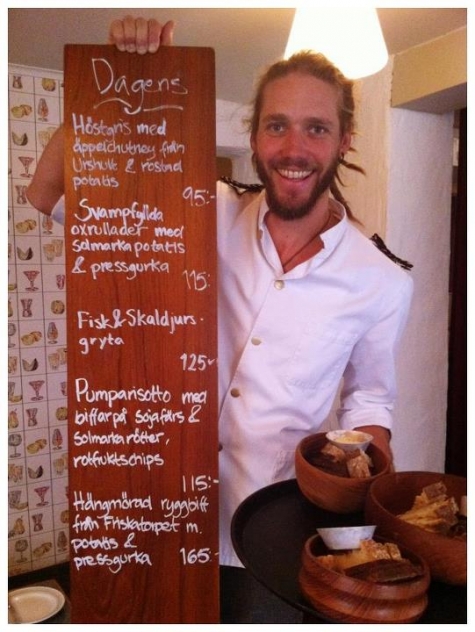 Dagens
Höstgris med
äppelchutney från
Urshult & rostad
potatis
95:-
Svampfyllda
oxrullader med
solmarkapotatis
& pressgurka
115:-
Fisk & Skaldjurs-
gryta
125:-
Pumparisotto med
biffar på sojafärs &
solmarkarötter,
rotfruktschips
115:-
Hängmörad ryggbiff
från Friskatorpet m.
potatis &
pressgurka 165:-